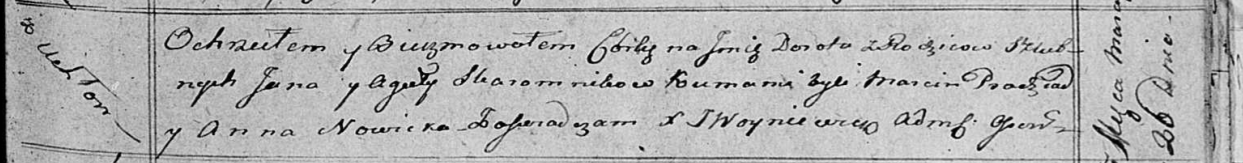 Ochrzciłem y Bierzmowałem Córkę na Jmię Dorota z Rodzicow Szlub-
nych Jana y Agaty Skaromnikow Kumami byli Marcin
y Anna Nowicka Poswiadczam X J Woyniewicz Adm:
Msca Mar
26 Dnia